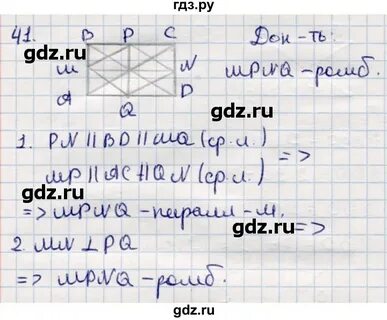 гдз.ру
41. B P C Док-ть:
M N MPNQ - ромб.
A Q D
1. PN || BD || MQ (ср.л.)
MP || AC || QN (ср.л.) =>
=> MPNQ - паралл-м. =>
2. MN ⊥ PQ
=> MPNQ - ромб.
gdz.ru
gdz.ru
gdz.ru
gdz.ru
gdz.ru
gdz.ru
gdz.ru